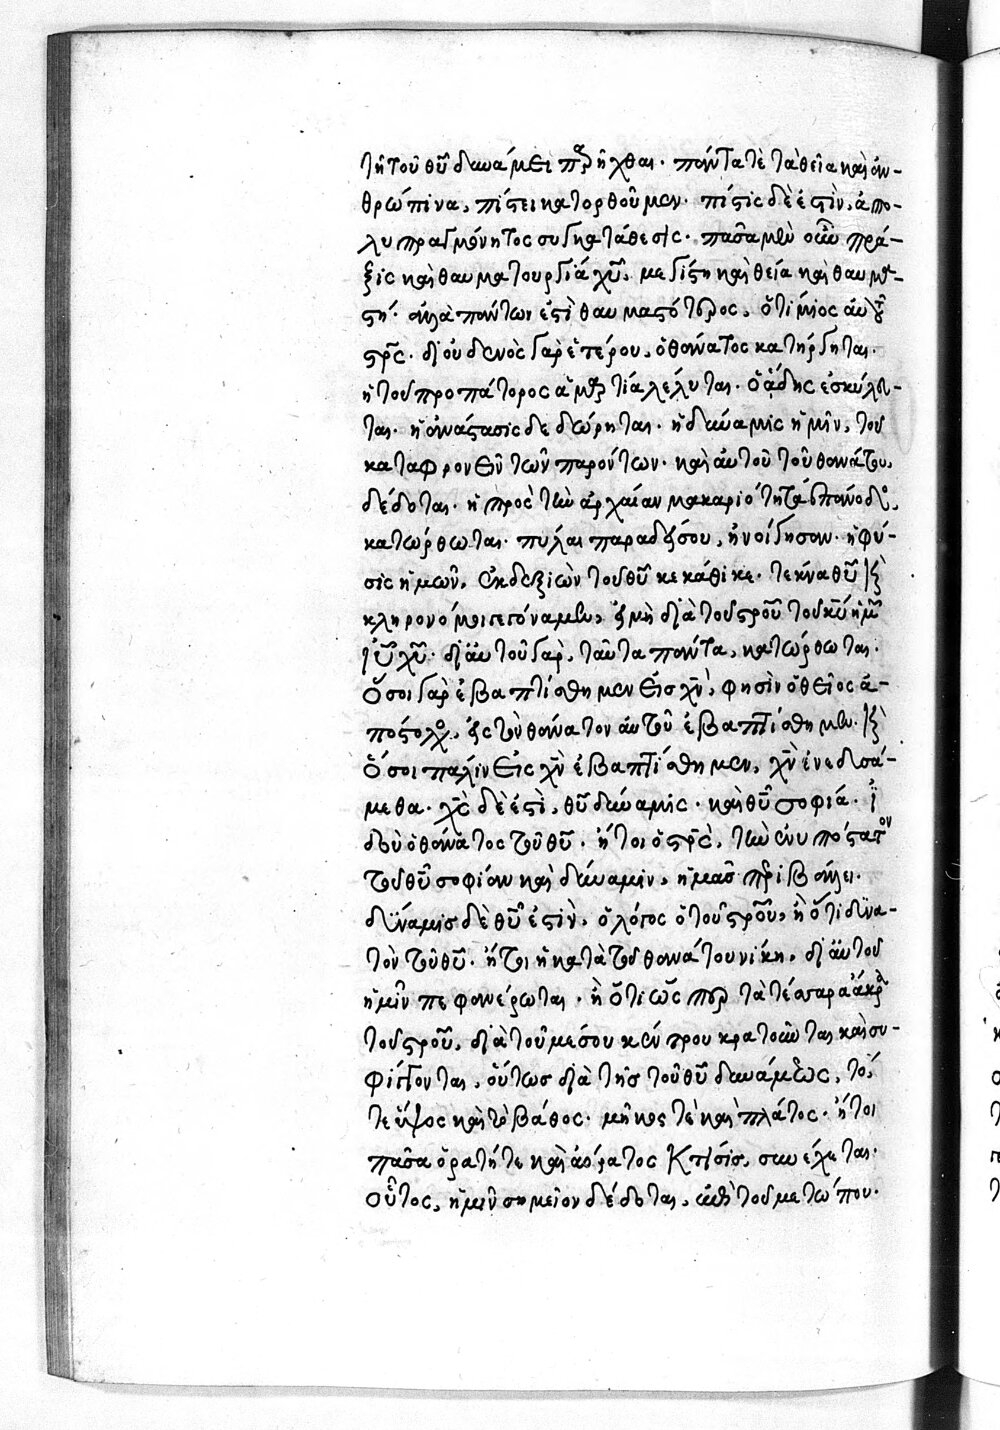 τῇ τοῦ θυ δυνάμει παρήχθαι. πάντα τὲ τὰ θεῖα καὶ ἀν-
θρώπινα, πίστει κατορθοῦμεν. πίστις δέ ἐστὶν, ἀπο-
λυπραγμόνητος συγκατάθεσις. πᾶσα μὲν οὖν πρά-
ξις καὶ θαυματουργία χυ, μεγίστη καὶ θεία καὶ θαυμα-
στή. ἀλλὰ πάντων ἐστὶ θαυμαστότερος, ὁ τίμιος αὐτοῦ
στρς. δι' οὐδενὸς γὰρ ἑτέρου, ὁ θάνατος κατήργηται.
ἡ τοῦ προπάτορος ἁμαρτία λέλυται. ὁ ᾅδης ἐσκύλευ-
ται. ἡ ἀνάστασις δεδώρηται. ἡ δύναμις ἡμῖν, τοῦ
καταφρονεῖν τῶν παρόντων. καὶ αὐτοῦ τοῦ θανάτου,
δέδοται. ἡ πρὸς τὴν ἀρχαίαν μακαριότητα ἐπάνοδος,
κατώρθωται. πύλαι παραδείσου, ἠνοίγησαν. ἡ φύ-
σις ἡμῶν, ἐκ δεξιῶν τοῦ θυ κεκάθικε. τέκνα θυ καὶ
κληρονόμοι γεγόναμεν, εἰ μὴ διὰ τοῦ στρου τοῦ κυ ἡμῶν
ιυ χυ. δι' αὐτοῦ γὰρ, ταῦτα πάντα, κατώρθωται.
Ὅσοι γὰρ ἐβαπτίσθημεν εἰς χν, φησὶν ὁ θεῖος ἀ-
πόστολος, εἰς τὸν θάνατον αὐτοῦ ἐβαπτίσθημεν. καὶ
Ὅσοι πάλιν εἰς χν ἐβαπτίσθημεν, χν ἐνεδυσά-
μεθα. χς δέ ἐστὶ, θυ δύναμις. καὶ θυ σοφία.
ἰδοὺ ὁ θάνατος τοῦ θυ. ἤτοι ὁ στρς, τὴν ἐνυπόστατον
τοῦ θυ σοφίαν καὶ δύναμιν, ἡμᾶς περιβάλλει.
δύναμις δὲ θυ ἐστὶν, ὁ λόγος ὁ τοῦ στρου, ἢ ὅτι δυνα-
τὸν τοῦ θυ. ἤτοι ἡ κατὰ τοῦ θανάτου νίκη, δι' αὐτοῦ
ἡμῖν πεφανέρωται. ἢ ὅτι ὥσπερ τὰ τέσσαρα ἄκρα
τοῦ στρου, διὰ τοῦ μέσου κέντρου κρατοῦνται καὶ συ-
σφίγγονται, οὕτως διὰ τῆς τοῦ θυ δυνάμεως, τό
τε ὕψος καὶ τὸ βάθος. μῆκος τὲ καὶ πλάτος. ἤτοι
πᾶσα ὁρατή τε καὶ ἀόρατος κτίσις, συνέχεται.
οὗτος, ἡμῖν σημεῖον δέδοται, ἐπὶ τοῦ μετώπου.